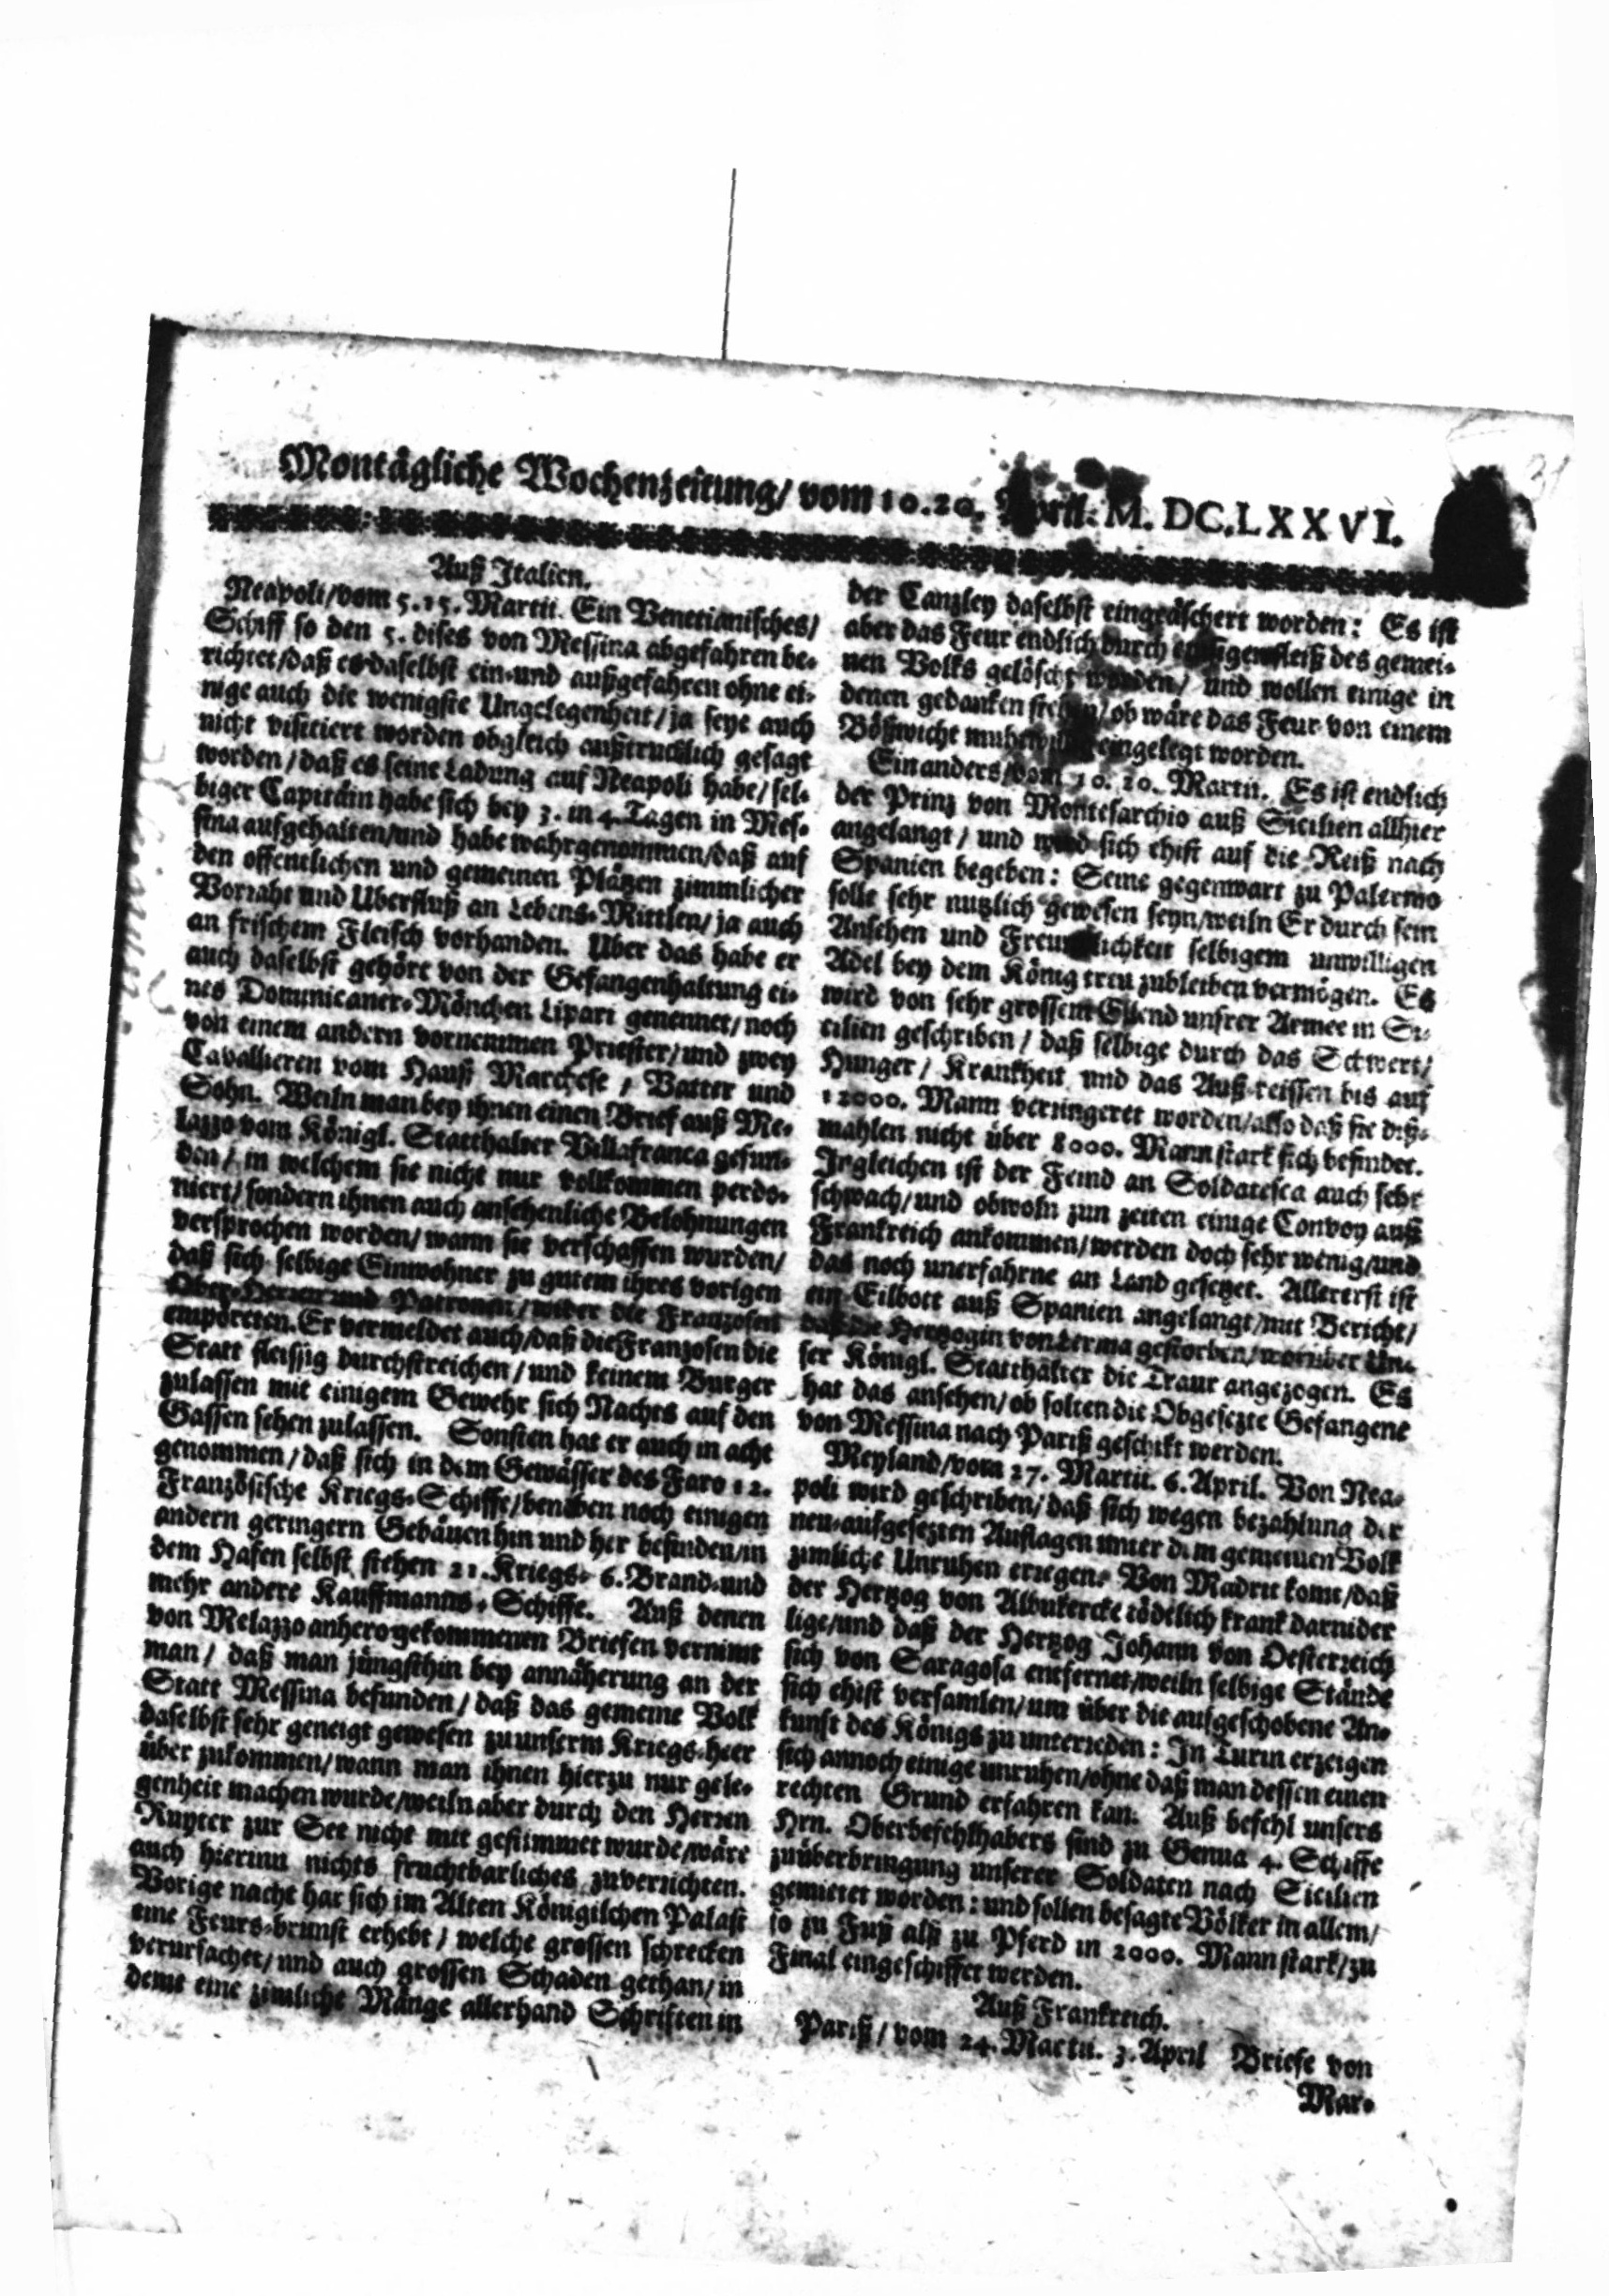 Montägliche Wochenzeitung/ vom 10.20. April. M. DC.LXXVI.
Auß Italien.
Neapoli/vom 5.15. Martii. Ein Venetianisches/
Schiff so den 5. dises von Messina abgefahren be-
richtet/daß es daselbst ein-und außgefahren ohne ei-
nige auch die wenigste Ungelegenheit/ja seye auch
nicht visitiert worden obgleich außtrucklich gesagt
worden/daß es seine Ladung auf Neapoli habe/sel-
biger Capitäin habe sich bey 3. in 4. Tagen in Mes-
sina aufgehalten/und habe wahrgenommen/daß auf
den offentlichen und gemeinen Plätzen zimmlicher
Vorraht und Uberfluß an Lebens-Mittlen/ja auch
an frischem Fleisch vorhanden. Uber das habe er
auch daselbst gehört von der Gefangenhaltung ei-
nes Dominicaner-Mönchen Lipari genennet/noch
von einem andern vornemmen Priester/und zwey
Cavallieren vom Hauß Marchese/Vatter und
Sohn. Weiln man bey ihnen einen Brief auß Me-
lazzo vom Königl. Statthalter Villafranca gefun-
den/in welchem sie nicht nur vollkommen perdo-
niert/sondern ihnen auch ansehenliche Belohnungen
versprochen worden/wann sie verschaffen wurden/
daß sich selbige Einwohner zu gutem ihres vorigen
Ober-Herren und Patronen/wider die Franzosen
empörten. Er vermeldet auch/daß die Franzosen die
Statt fleissig durchstreichen/und keinem Burger
zulassen mit einigem Gewehr sich Nachts auf den
Gassen sehen zulassen. Sonsten hat er auch in acht
genommen/daß sich in dem Gewässer des Faro 12.
Französische Kriegs-Schiffe/benäben noch einigen
andern geringern Gebäuen hin und her befinden/in
dem Hafen selbst stehen 21. Kriegs- 6. Brand-und
mehr andere Kauffmanns-Schiffe. Auß denen
von Melazzo anhero gekommenen Briefen vernimt
man/daß man jüngsthin bey annäherung an der
Statt Messina befunden/daß das gemeine Volk
daselbst sehr geneigt gewesen zu unserm Kriegs-heer
über zukommen/wann man ihnen hierzu nur gele-
genheit machen wurde/weiln aber durch den Herren
Ruyter zur See nicht mit gestimmet wurde/wäre
auch hierinn nichts fruchtbarliches zuverrichten.
Vorige nacht hat sich im Alten Königilchen Palast
eine Feurs-brunst erhebt/welche grossen schrecken
verursachet/und auch grossen Schaden gethan/in
deme eine zimliche Mänge allerhand Schriften in
der Canzley daselbst eingeäschert worden: Es ist
aber das Feur endlich durch fleiß des gemei-
nen Volks gelöscht worden/ und wollen einige in
denen gedanken stehen/ob wäre das Feur von einem
Bößwicht eingelegt worden.
Ein anders/vom 10. 20. Martii. Es ist endlich
der Prinz von Montesarchio auß Sicilien allhier
angelangt/ und wird sich ehist auf die Reiß nach
Spanien begeben: Seine gegenwart zu Palermo
solle sehr nutzlich gewesen seyn/weiln Er durch sein
Ansehen und Freundlichkeit selbigem unwilligen
Adel bey dem König treu zubleiben vermögen. Es
wird von sehr grossem Ellend unsrer Armee in Si-
cilien geschriben/ daß selbige durch das Schwert/
Hunger/ Krankheit und das Auß-reissen bis auf
12000. Mann verringeret worden/also daß sie diß-
mahlen nicht über 8000. Mann stark sich befindet.
Ingleichen ist der Feind an Soldatesca auch sehr
schwach/und obwoln zun zeiten einige Convoy auß
Frankreich ankommen/werden doch sehr wenig/und
das noch unerfahrne an Land gesetzet. Allererst ist
ein Eilbott auß Spanien angelangt/mit Bericht/
daß die Hertzogin von Lerma gestorben/worüber Un-
ser Königl. Statthalter die Traur angezogen. Es
hat das ansehen/ob solten die Obgesezte Gefangene
von Messina nach Pariß geschikt werden.
Meyland/vom 27. Martii. 6. April. Von Nea-
poli wird geschriben/daß sich wegen bezahlung der
neu-aufgesezten Auflagen unter dem gemeinen Volk
zimliche Unruhen erregen. Von Madrit komt/daß
der Hertzog von Albukercke tödtlich krank darnider
lige/und daß der Hertzog Johann von Oesterreich
sich von Saragosa entfernet/weiln selbige Stände
sich ehist versamlen/um über die aufgeschobene An-
kunft des Königs zu unterreden: In Turin erzeigen
sich annoch einige unruhen/ohne daß man dessen einen
rechten Grund erfahren kan. Auß befehl unsers
Hrn. Oberbefehlhabers sind zu Genua 4. Schiffe
zuüberbringung unserer Soldaten nach Sicilien
gemietet worden: und sollen besagte Völker in allem/
so zu Fuß alß zu Pferd in 2000. Mann stark/zu
Final eingeschiffet werden.
Auß Frankreich.
Pariß/ vom 24. Martii. 3. April Briefe von
Mar-